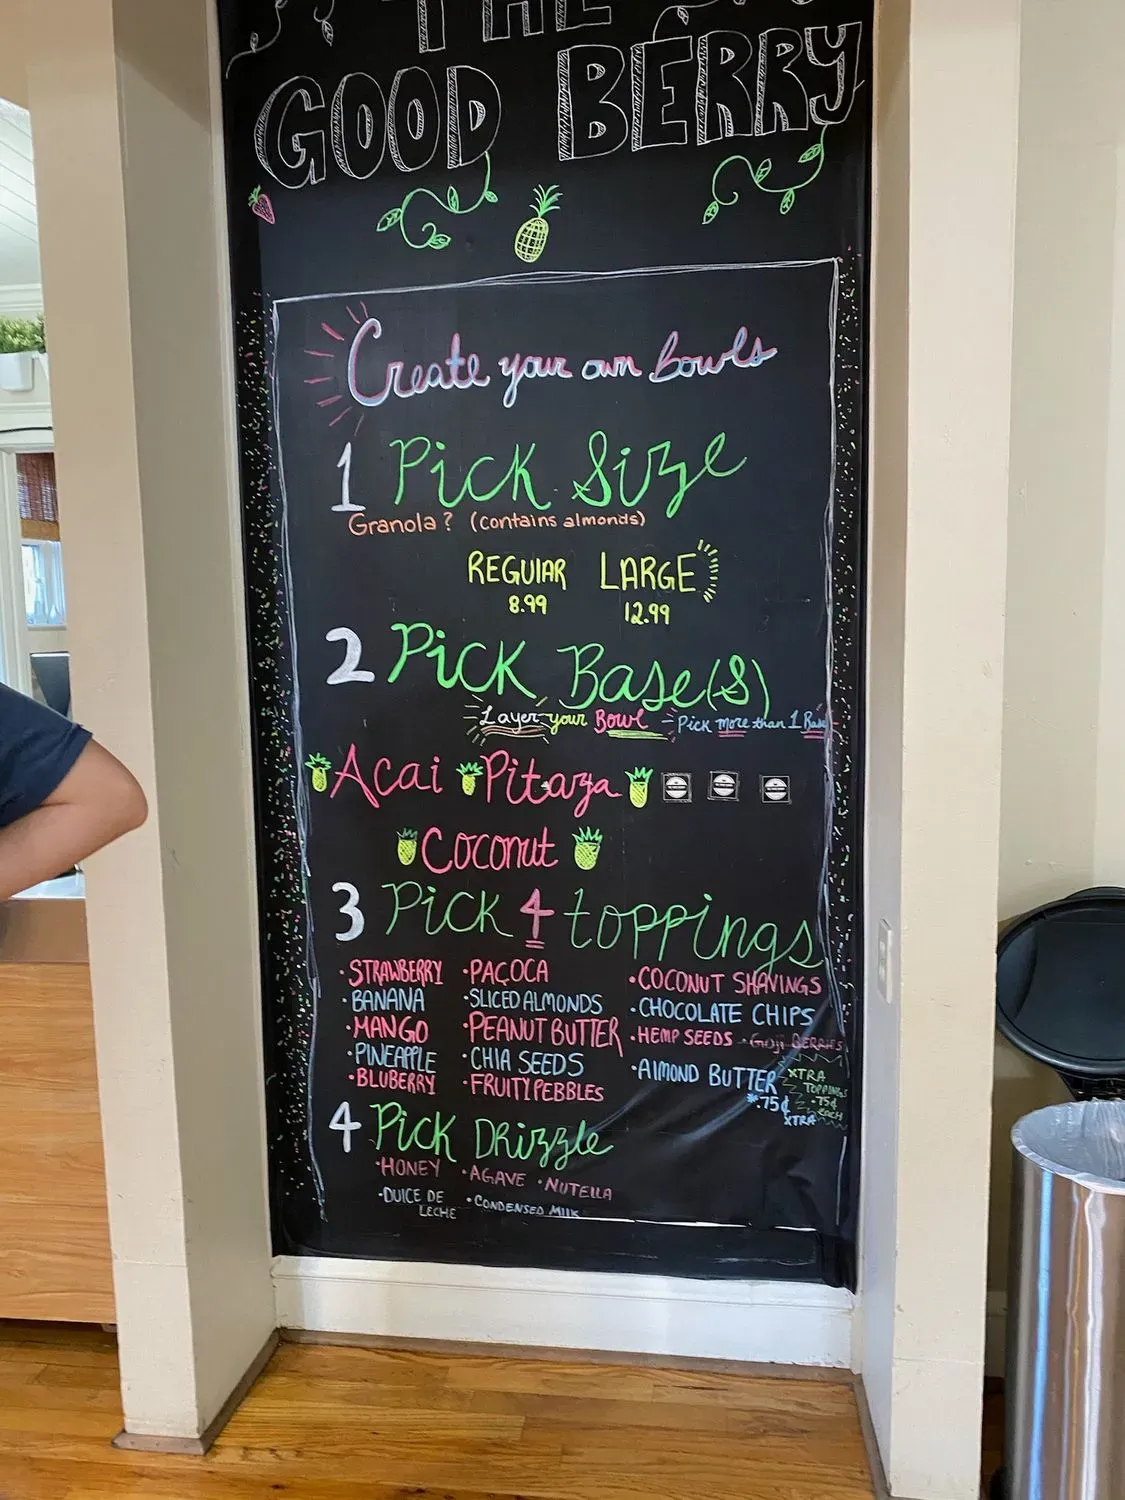 THE
GOOD BERRY
Create your own Bowls
1 Pick Size
Granola? (contains almonds)
REGULAR LARGE
8.99 12.99
2 Pick Base(s)
Layer your Bowl Pick more than 1 Base
Acai Pitaya
Coconut
3 Pick 4 toppings
·STRAWBERRY ·PAÇOCA ·COCONUT SHAVINGS
·BANANA ·SLICED ALMONDS ·CHOCOLATE CHIPS
·MANGO ·PEANUT BUTTER ·HEMP SEEDS ·Goji BERRIES
·PINEAPPLE ·CHIA SEEDS ·ALMOND BUTTER
·BLUBERRY ·FRUITY PEBBLES
*.75¢
XTRA
XTRA
TOPPINGS
.75¢
EACH
4 Pick DRizzle
·HONEY ·AGAVE ·NUTELLA
·DULCE DE LECHE ·CONDENSED MILK